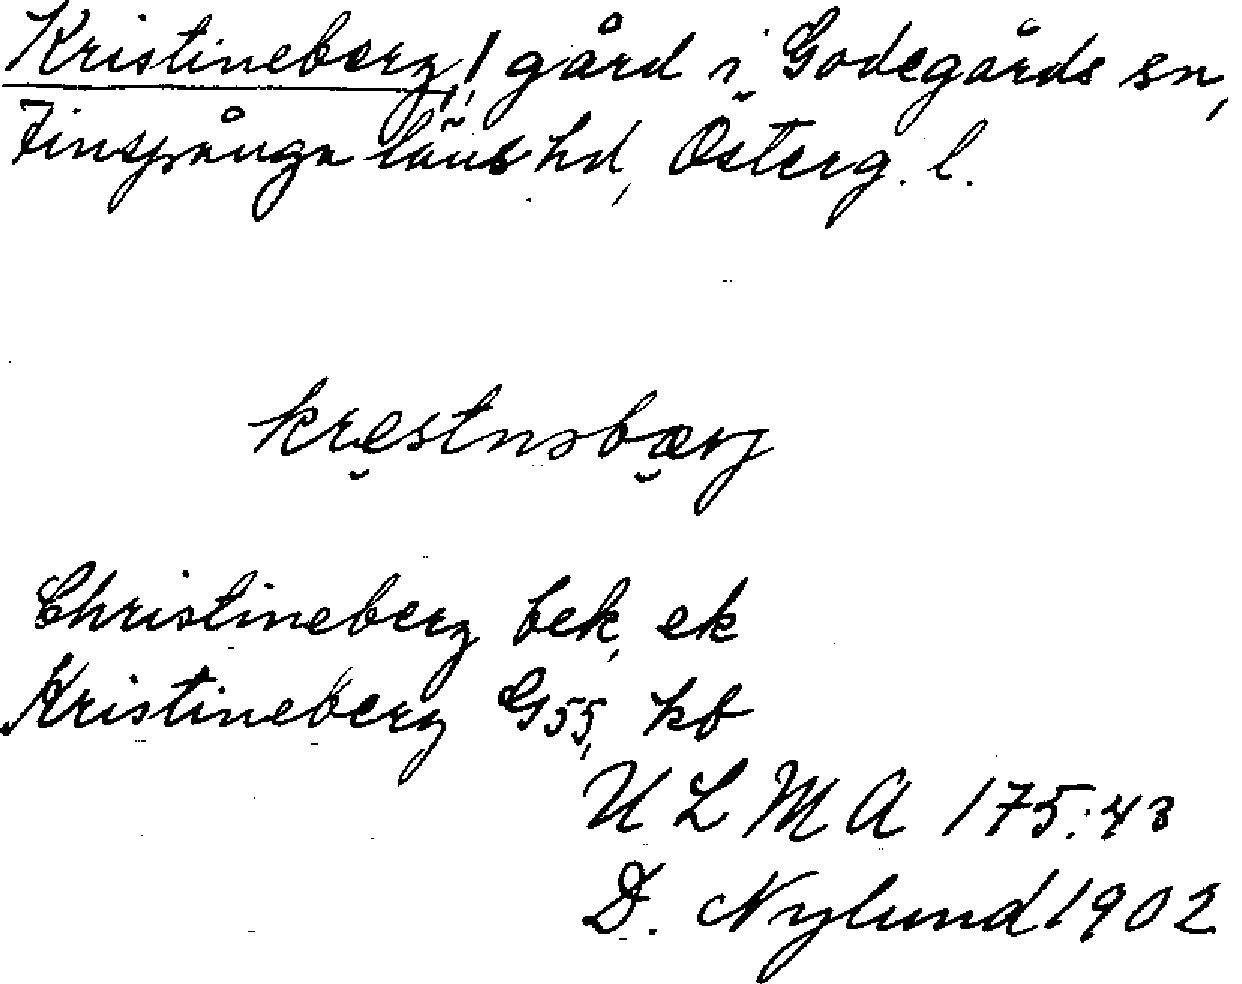 Kristineberg, / gård i Godegårds sn,
Finspånga läns hd, Österg. l.
krestnsbærj
Christineberg bek, ek
Kristineberg G55, kb
ULMA 175:43
D. Nylund 1902